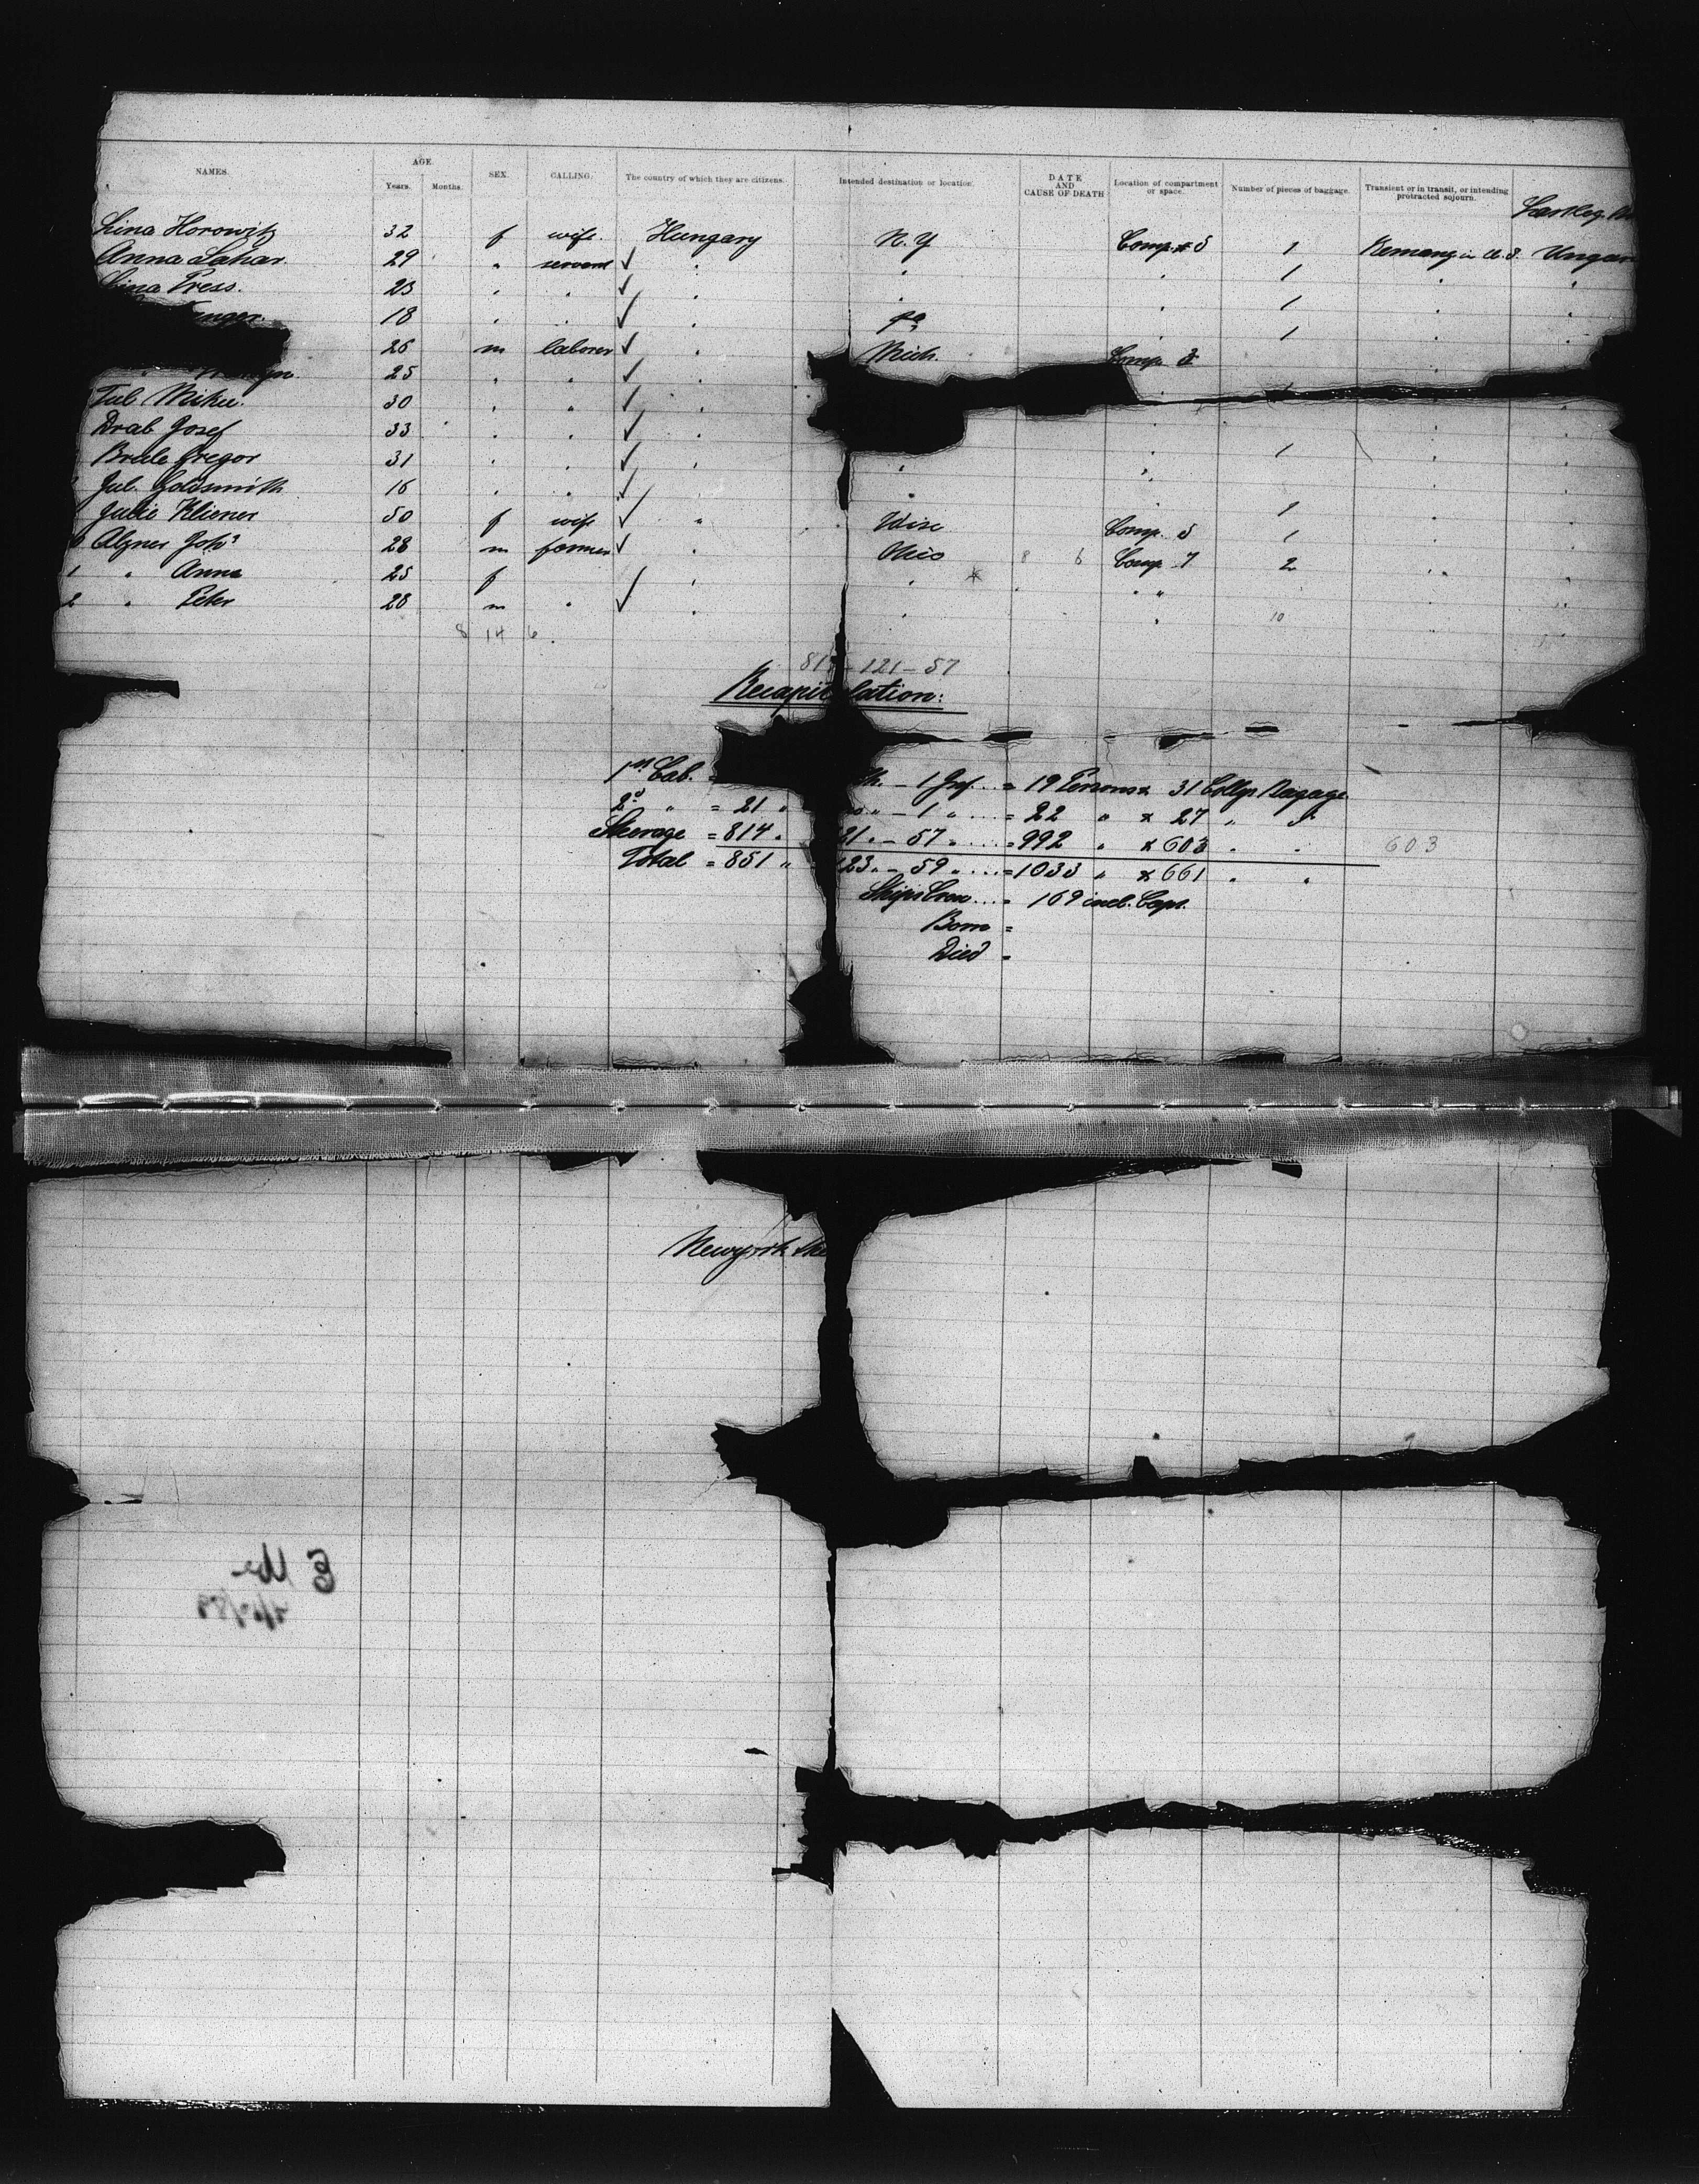 NAMES. AGE. Years. Months. SEX. CALLING. The country of which they are citizens. Intended destination or location. DATE AND CAUSE OF DEATH Location of compartment or space. Number of pieces of baggage. Transient or in transit, or intending protracted sojourn.
Lina Horowitz 32 f wife Hungary N.Y Comp. 5 1
Anna Lahar 29 " servant ✓ " " " 1 " "
Lina Press. 23 " " ✓ " " " 1 " "
18 " " ✓ " pa " 1 " "
26 m laborer ✓ " Mich. Comp. 3 "
25 " " ✓ "
Tul Mikee. 30 " " ✓ "
Drab Josef 33 " " ✓ " "
Brele Gregor 31 " " ✓ " " " 1 "
Jul. Goldsmith 16 " " ✓ " " "
Julie Kliener 50 f wife ✓ " Wisc Comp. 5 1 "
Alzner Joh? 28 m farmer ✓ " Ohio 8 6 Comp. 7 2 "
1 " Anna 25 f ✓ " " " "
2 " Peter 28 m " ✓ " " " 10 "
8 14 6
- 121 - 57
Recapitulation:
1st Cab. = - 1 Inf. ... = 19 Persons & 31 Collys Bagage
2d " = 21 " " - 1 " ... = 22 " & 27 " "
Steerage = 814 " 21 " - 57 " ... = 992 " & 603 " " 603
Total = 851 " 123 " - 59 " ... = 1033 " & 661 " "
Ships Crew ... = 109 incl. Capt.
Born =
Died =
Newyork the